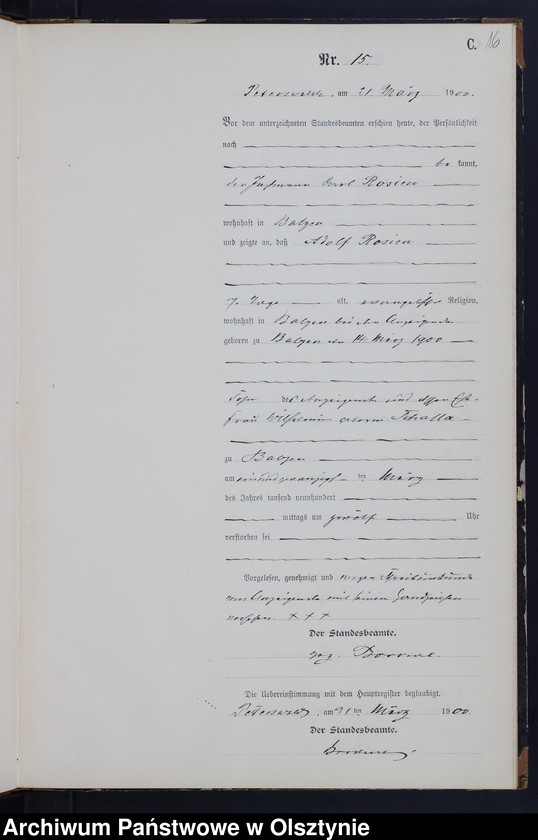 C. 16
Nr. 15.
Peterswalde, am 21 März 1900.
Vor dem unterzeichneten Standesbeamten erschien heute, der Persönlichkeit
nach
be kannt,
der Instmann Carl Rosien
wohnhaft in Balzen
und zeigte an, daß Adolf Rosien
7 Tage alt, evangelischer Religion,
wohnhaft in Balzen bei dem Anzeigenden
geboren zu Balzen am 14. März 1900
Sohn des Anzeigenden und dessen Ehe-
frau Wilhelmine geborene
zu Balzen
am einundzwanzigsten ten März
des Jahres tausend neunhundert
mittags um zwölf Uhr
verstorben sei
Vorgelesen, genehmigt und wegen Schreibunkunde
vom Anzeigenden mit seinem Handzeichen
versehen. + + +
Der Standesbeamte.
gez.
Die Uebereinstimmung mit dem Hauptregister beglaubigt.
Peterswalde, am 21 ten März 1900.
Der Standesbeamte.
Archiwum Państwowe w Olsztynie